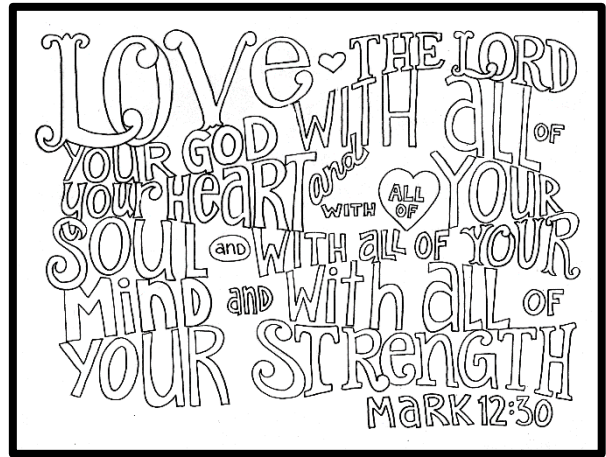 Love THE LORD
YOUR GOD WITH all OF
youR HeaRT and WITH ALL OF YOUR
SOUL and WITH all OF YOUR
MinD anD With all OF
YOUR STRenGTH
MaRK 12:30